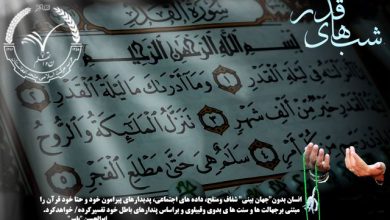 شب‌های قدر
سُورَةُ القَدرِ
بِسْمِ اللَّهِ الرَّحْمَٰنِ الرَّحِيمِ
فِي لَيْلَةِ الْقَدْرِ ١ وَمَا أَدْرَىٰكَ مَا لَيْلَةُ الْقَدْرِ ٢
الْقَدْرِ خَيْرٌ مِّنْ أَلْفِ شَهْرٍ ٣ تَنَزَّلُ الْمَلَٰٓئِكَةُ وَالرُّوحُ
سَلَٰمٌ هِيَ حَتَّىٰ مَطْلَعِ الْفَجْرِ
انسان بدون "جهان بینی" شفاف ومنقح، داده های اجتماعی، پدیدارهای پیرامون خود و حتا خود قرآن را
مبتنی برجهالت ها و سنت ها ی بدوی وقبیلوی و براساس پندارهای باطل خود تفسیرکرده/ خواهدکرد.